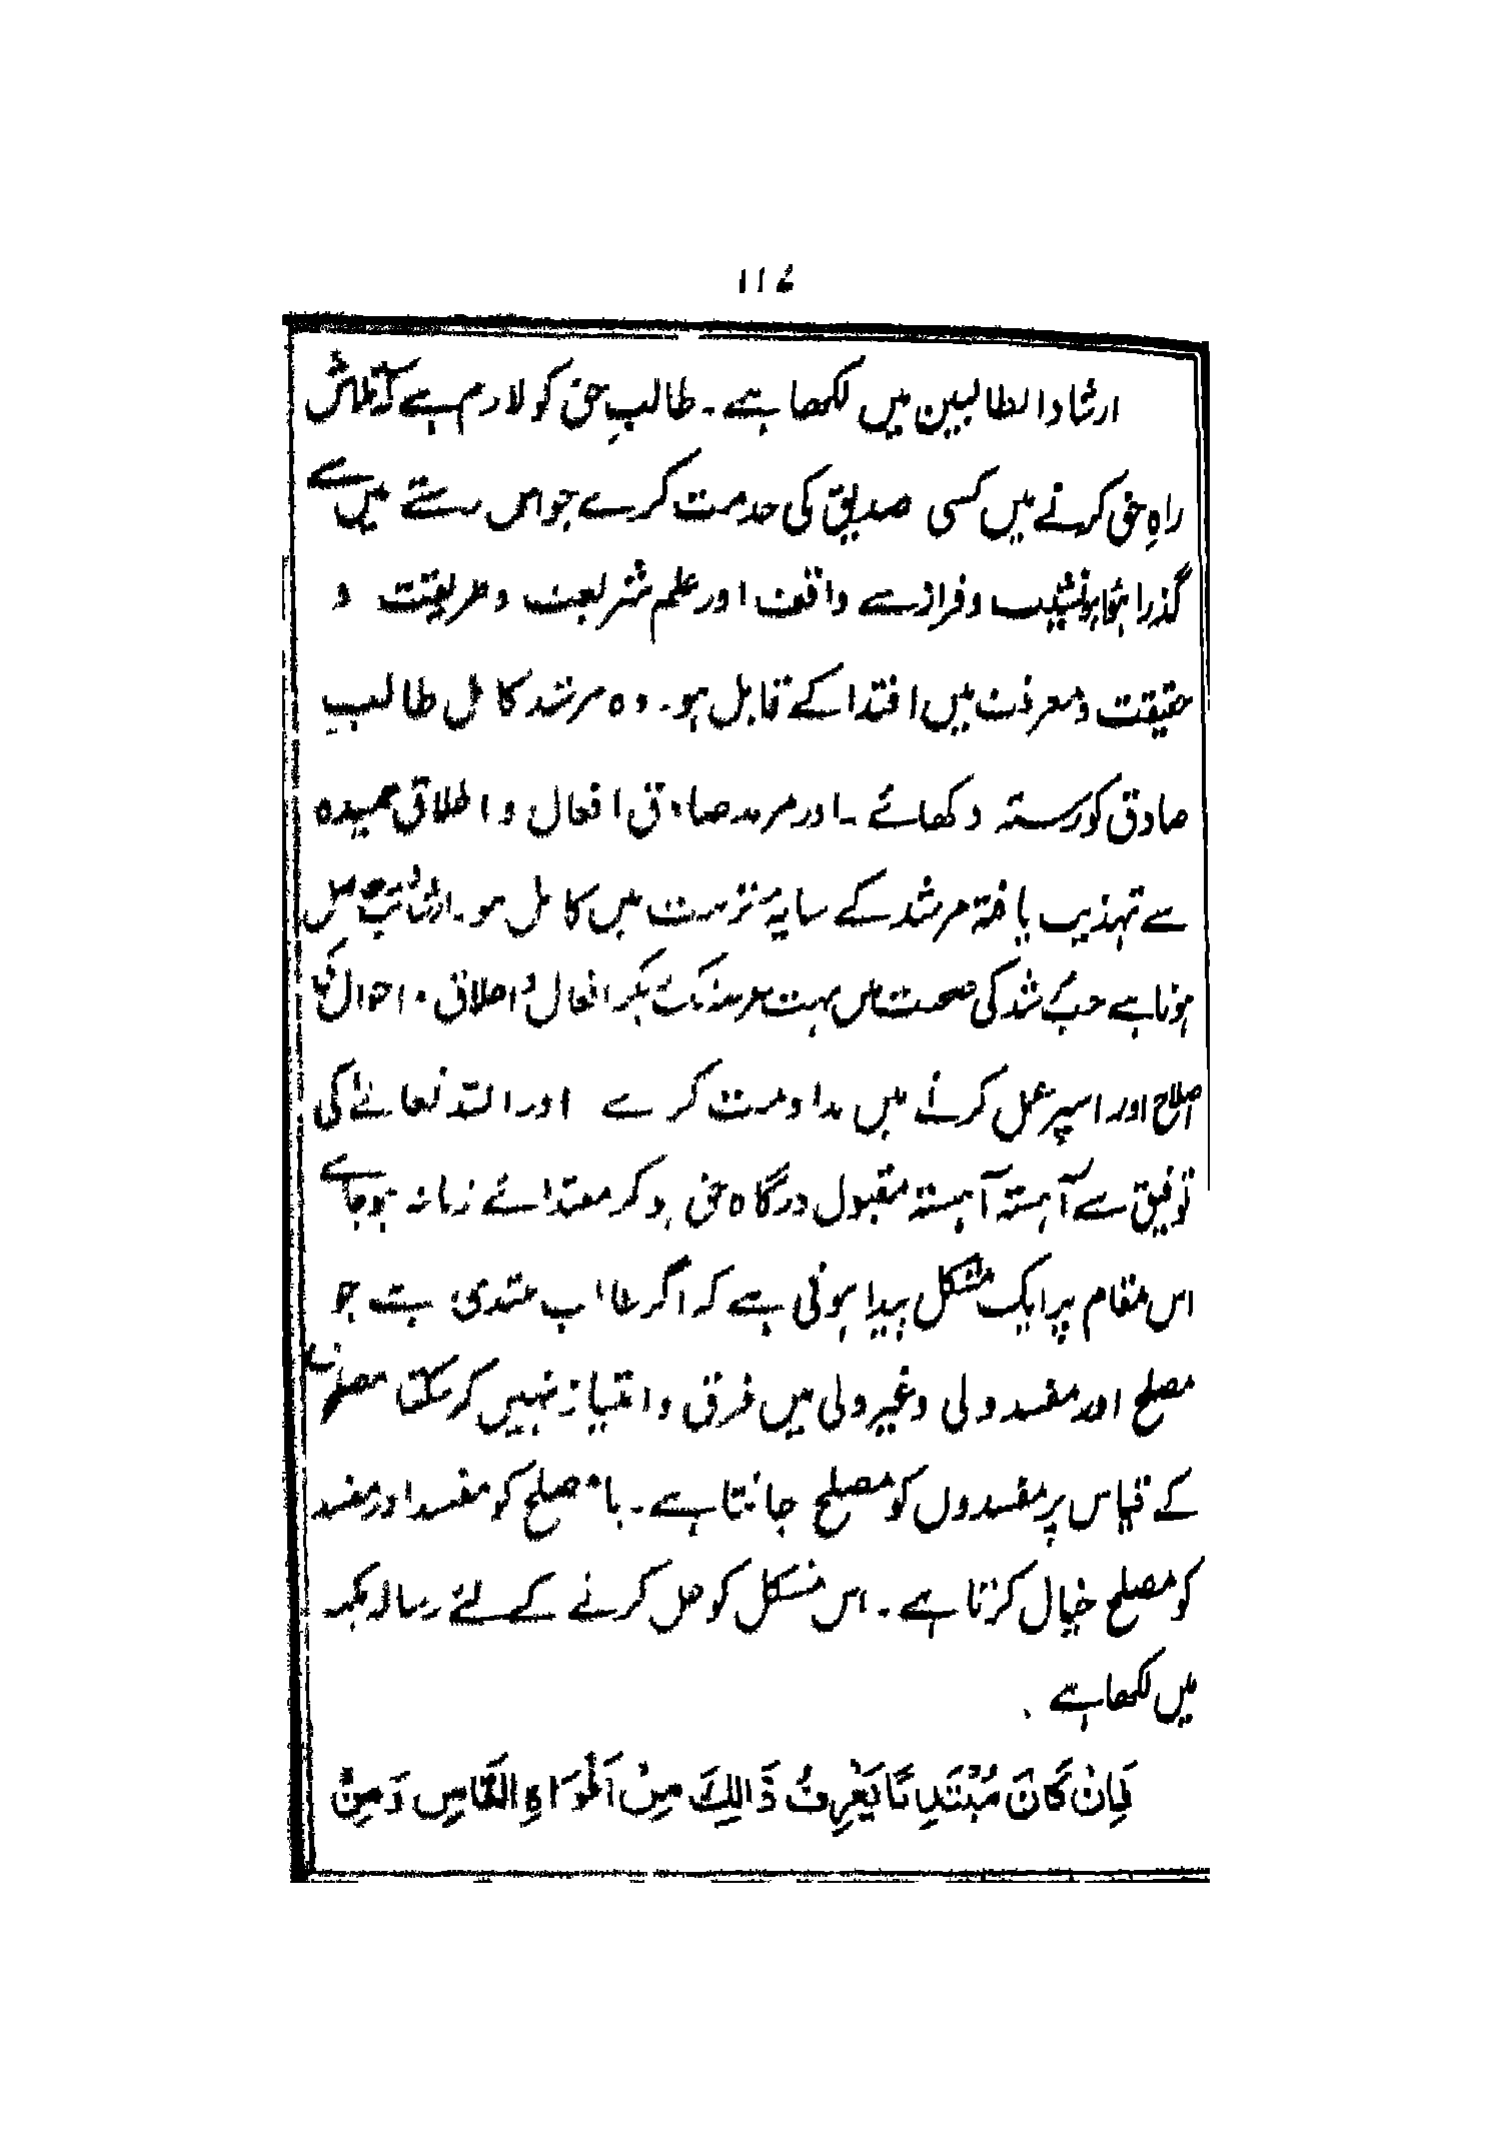 ۱۱۷
ارشاد الطالبین میں لکھا ہے۔ طالبِ حق کو لازم ہے کہ تلاش
راہِ حق کرنے میں کسی صدیق کی خدمت کرے جو اس رستے میں سے
گذرا ہؤا ہو نشیب و فراز سے واقف اور علم شریعت و طریقت و
حقیقت و معرفت میں اقتدا کے قابل ہو۔ وہ مرشد کامل طالب
صادق کو رستہ دکھائے۔ اور مرید صادق افعال و اخلاق حمیدہ
سے تہذیب یافتہ مرشد کے سایۂ تربیت میں کامل ہو۔
ہوتا ہے جب مرشد کی صحبت میں بہت عرصہ تک افعال و اخلاق و احوال کی
اصلاح اور اسپر عمل کرنے میں مداومت کرے اور اللہ تعالےٰ کی
توفیق سے آہستہ آہستہ مقبول درگاہ حق ہو کر مقتدائے زمانہ ہو جائے
اس مقام پر ایک مشکل پیدا ہوتی ہے کہ اگر طالب مبتدی ہے جو
مصلح اور مفسد ولی و غیر ولی میں فرق و امتیاز نہیں کر سکتا
کے قیاس پر مفسدوں کو مصلح جانتا ہے۔ یا مصلح کو مفسد اور مفسد
کو مصلح خیال کرتا ہے۔ اس مشکل کو حل کرنے کے لئے رسالہ مکیہ
میں لکھا ہے
فَاِنْ كَانَ مُبْتَدِيًا يَعْرِفُ ذَالِكَ مِنْ اَفْوَاهِ النَّاسِ وَمِنْ